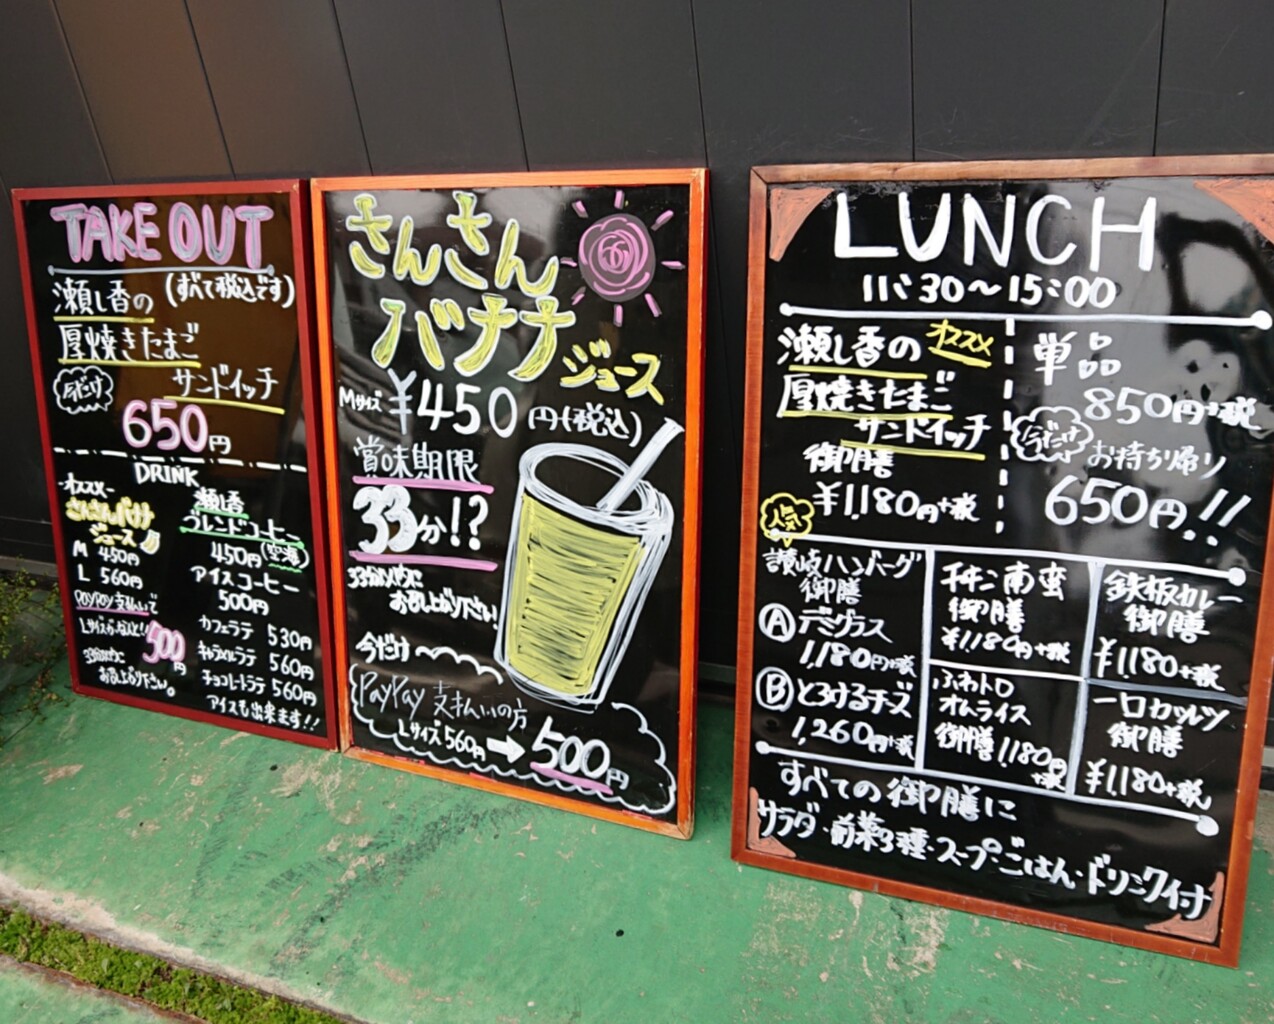 TAKE OUT
(すべて税込です)
瀬し香の
厚焼きたまご
サンドイッチ
今だけ
650円
DRINK
オススメ
さんさんバナナ
ジュース
M 450円
L 560円
PayPay支払いで
500円
33分以内に
お召し上がり下さい。
瀬し香
ブレンドコーヒー
450円(空海)
アイスコーヒー
500円
カフェラテ 530円
キャラメルラテ 560円
チョコレートラテ 560円
アイスも出来ます!!
さんさん
バナナ
ジュース
Mサイズ ¥450円(税込)
賞味期限
33分!?
33分以内に
お召し上がり下さい!
今だけ
PayPay 支払いの方
Lサイズ 560円 → 500円
LUNCH
11:30～15:00
瀬し香の オススメ
厚焼きたまご
サンドイッチ
御膳
¥1,180円+税
単品
850円+税
今だけ お持ち帰り
650円!!
人気
讃岐ハンバーグ
御膳
Ⓐ デミグラス
1,180円+税
Ⓑ とろけるチーズ
1,260円+税
チキン南蛮
御膳
¥1,180円+税
鉄板カレー
御膳
¥1,180+税
ふわトロ
オムライス
御膳 1,180円
+税
一口カツレツ
御膳
¥1,180+税
すべての御膳に
サラダ・前菜3種・スープ・ごはん・ドリンク付